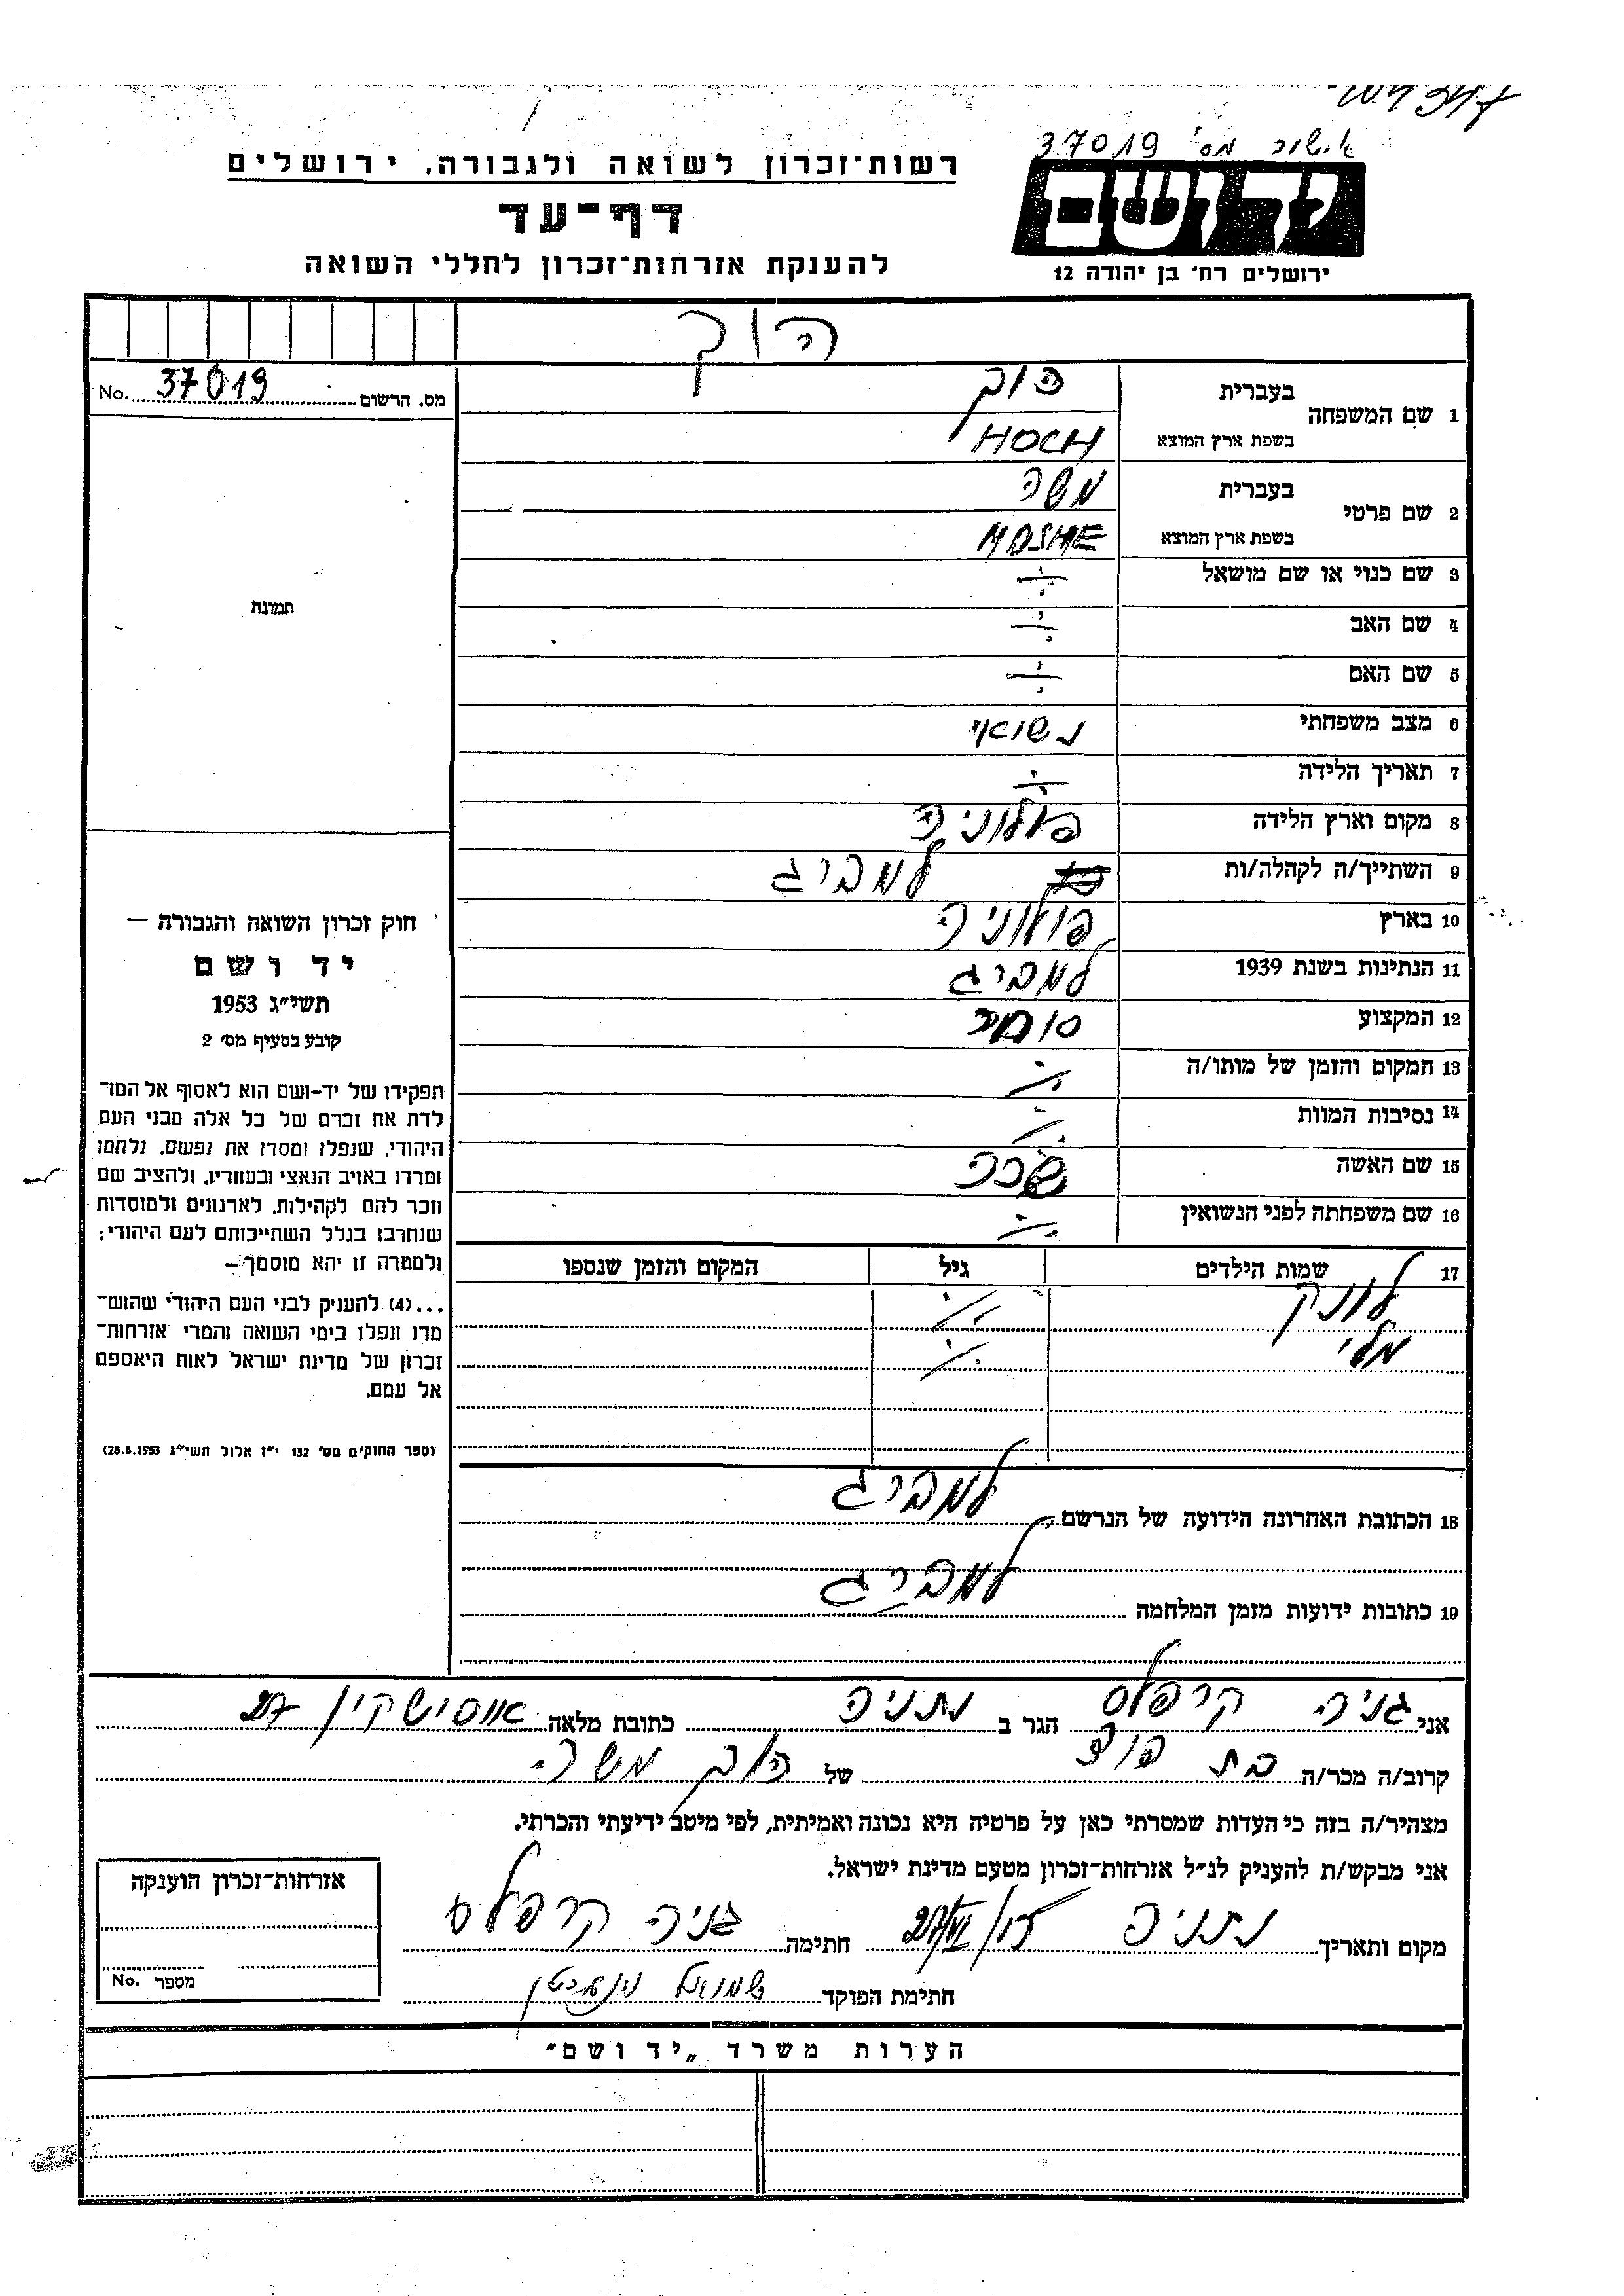 אישור מס' 37019
יד ושם
ירושלים רח' בן יהודה 12
רשות־זכרון לשואה ולגבורה, ירושלים
דף־עד
להענקת אזרחות־זכרון לחללי השואה
הוך
מס. הרשום 37019 No.
1 שם המשפחה בעברית הוך
בשפת ארץ המוצא HOCH
2 שם פרטי בעברית משה
בשפת ארץ המוצא MOSHE
3 שם כנוי או שם מושאל
4 שם האב
5 שם האם
6 מצב משפחתי נשואי
7 תאריך הלידה
8 מקום וארץ הלידה פולוניה
9 השתייך/ה לקהלה/ות למבירג
10 בארץ פולוניה
11 הנתינות בשנת 1939 למבירג
12 המקצוע סוחר
13 המקום והזמן של מותו/ה
14 נסיבות המוות
15 שם האשה
16 שם משפחתה לפני הנשואין
17 שמות הילדים גיל המקום והזמן שנספו
לונק
מלי
18 הכתובת האחרונה הידועה של הנרשם למבירג
19 כתובות ידועות מזמן המלחמה למבירג
תמונה
חוק זכרון השואה והגבורה —
יד ושם
תשי״ג 1953
קובע בסעיף מס' 2
תפקידו של יד-ושם הוא לאסוף אל המו־
לדת את זכרם של כל אלה מבני העם
היהודי, שנפלו ומסרו את נפשם, נלחמו
ומרדו באויב הנאצי ובעוזריו, ולהציב שם
וזכר להם לקהילות, לארגונים ולמוסדות
שנחרבו בגלל השתייכותם לעם היהודי;
ולמטרה זו יהא מוסמך —
...(4) להעניק לבני העם היהודי שהוש־
מדו ונפלו בימי השואה והמרי אזרחות־
זכרון של מדינת ישראל לאות היאספם
אל עמם.
(ספר החוקים מס' 132 י״ז אלול תשי״ג 28.8.1953)
אני גניה קרפלס הגר ב נתניה כתובת מלאה אוסישקין 27
קרוב/ה מכר/ה בת דוד של הוך משה
מצהיר/ה בזה כי העדות שמסרתי כאן על פרטיה היא נכונה ואמיתית, לפי מיטב ידיעתי והכרתי.
אני מבקש/ת להעניק לנ״ל אזרחות־זכרון מטעם מדינת ישראל.
מקום ותאריך נתניה חתימה גניה קרפלס
חתימת הפוקד שמואל
אזרחות־זכרון הוענקה
מספר No.
הערות משרד „יד ושם״